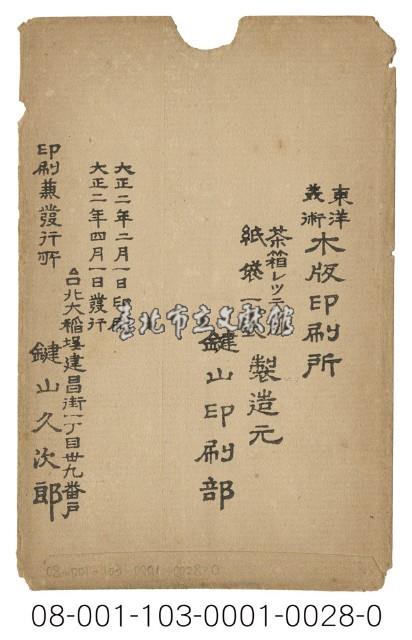 東洋
美術
木版印刷所
茶箱レツテ
紙袋一
製造元
鍵山印刷部
大正二年二月一日印刷
大正二年四月一日發行
印刷兼發行所
台北大稻埕建昌街一丁目卅九番戶
鍵山久次郎
臺北市立文獻館
08-001-103-0001-0028-0
08-001-103-0001-0028-0